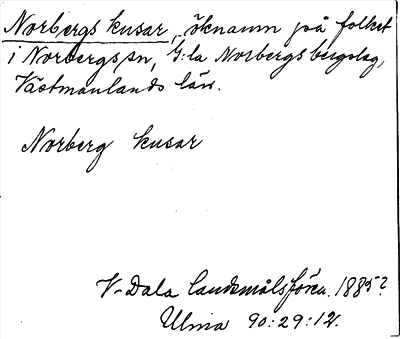 Norbergs kusar, öknamn på folket
i Norbergs sn, G:la Norbergs bergslag,
Västmanlands län.
Norberg kusar
V-Dala landsmålsfören. 1885?
Ulma 90:29:12.